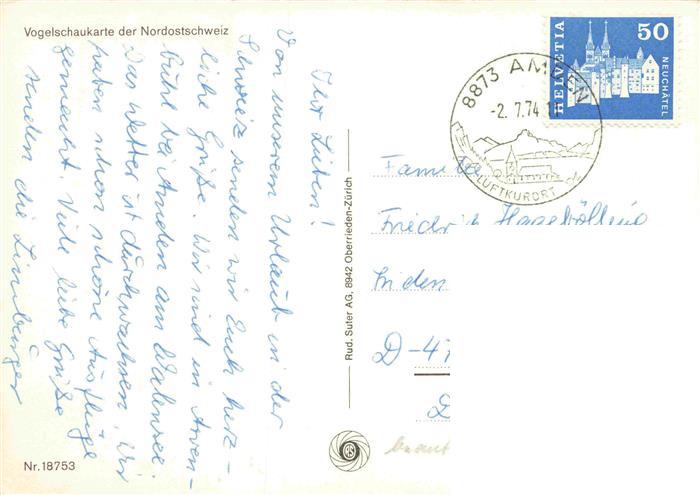 Vogelschaukarte der Nordostschweiz
Ihr Lieben!
Von unserem Urlaub in der
Schweiz senden wir Euch herz-
liche Grüße. Wir sind in Arven-
bühl bei Amden am Walensee.
Das Wetter ist durchwachsen. Wir
haben schon schöne Ausflüge
gemacht. Viele liebe Grüße
senden die Limburger
Nr. 18753
Rud. Suter AG, 8942 Oberrieden-Zürich
8873 AMDEN
-2.7.74
LUFTKURORT
HELVETIA
50
NEUCHÂTEL
Familie
Friedrich
In den
D-4